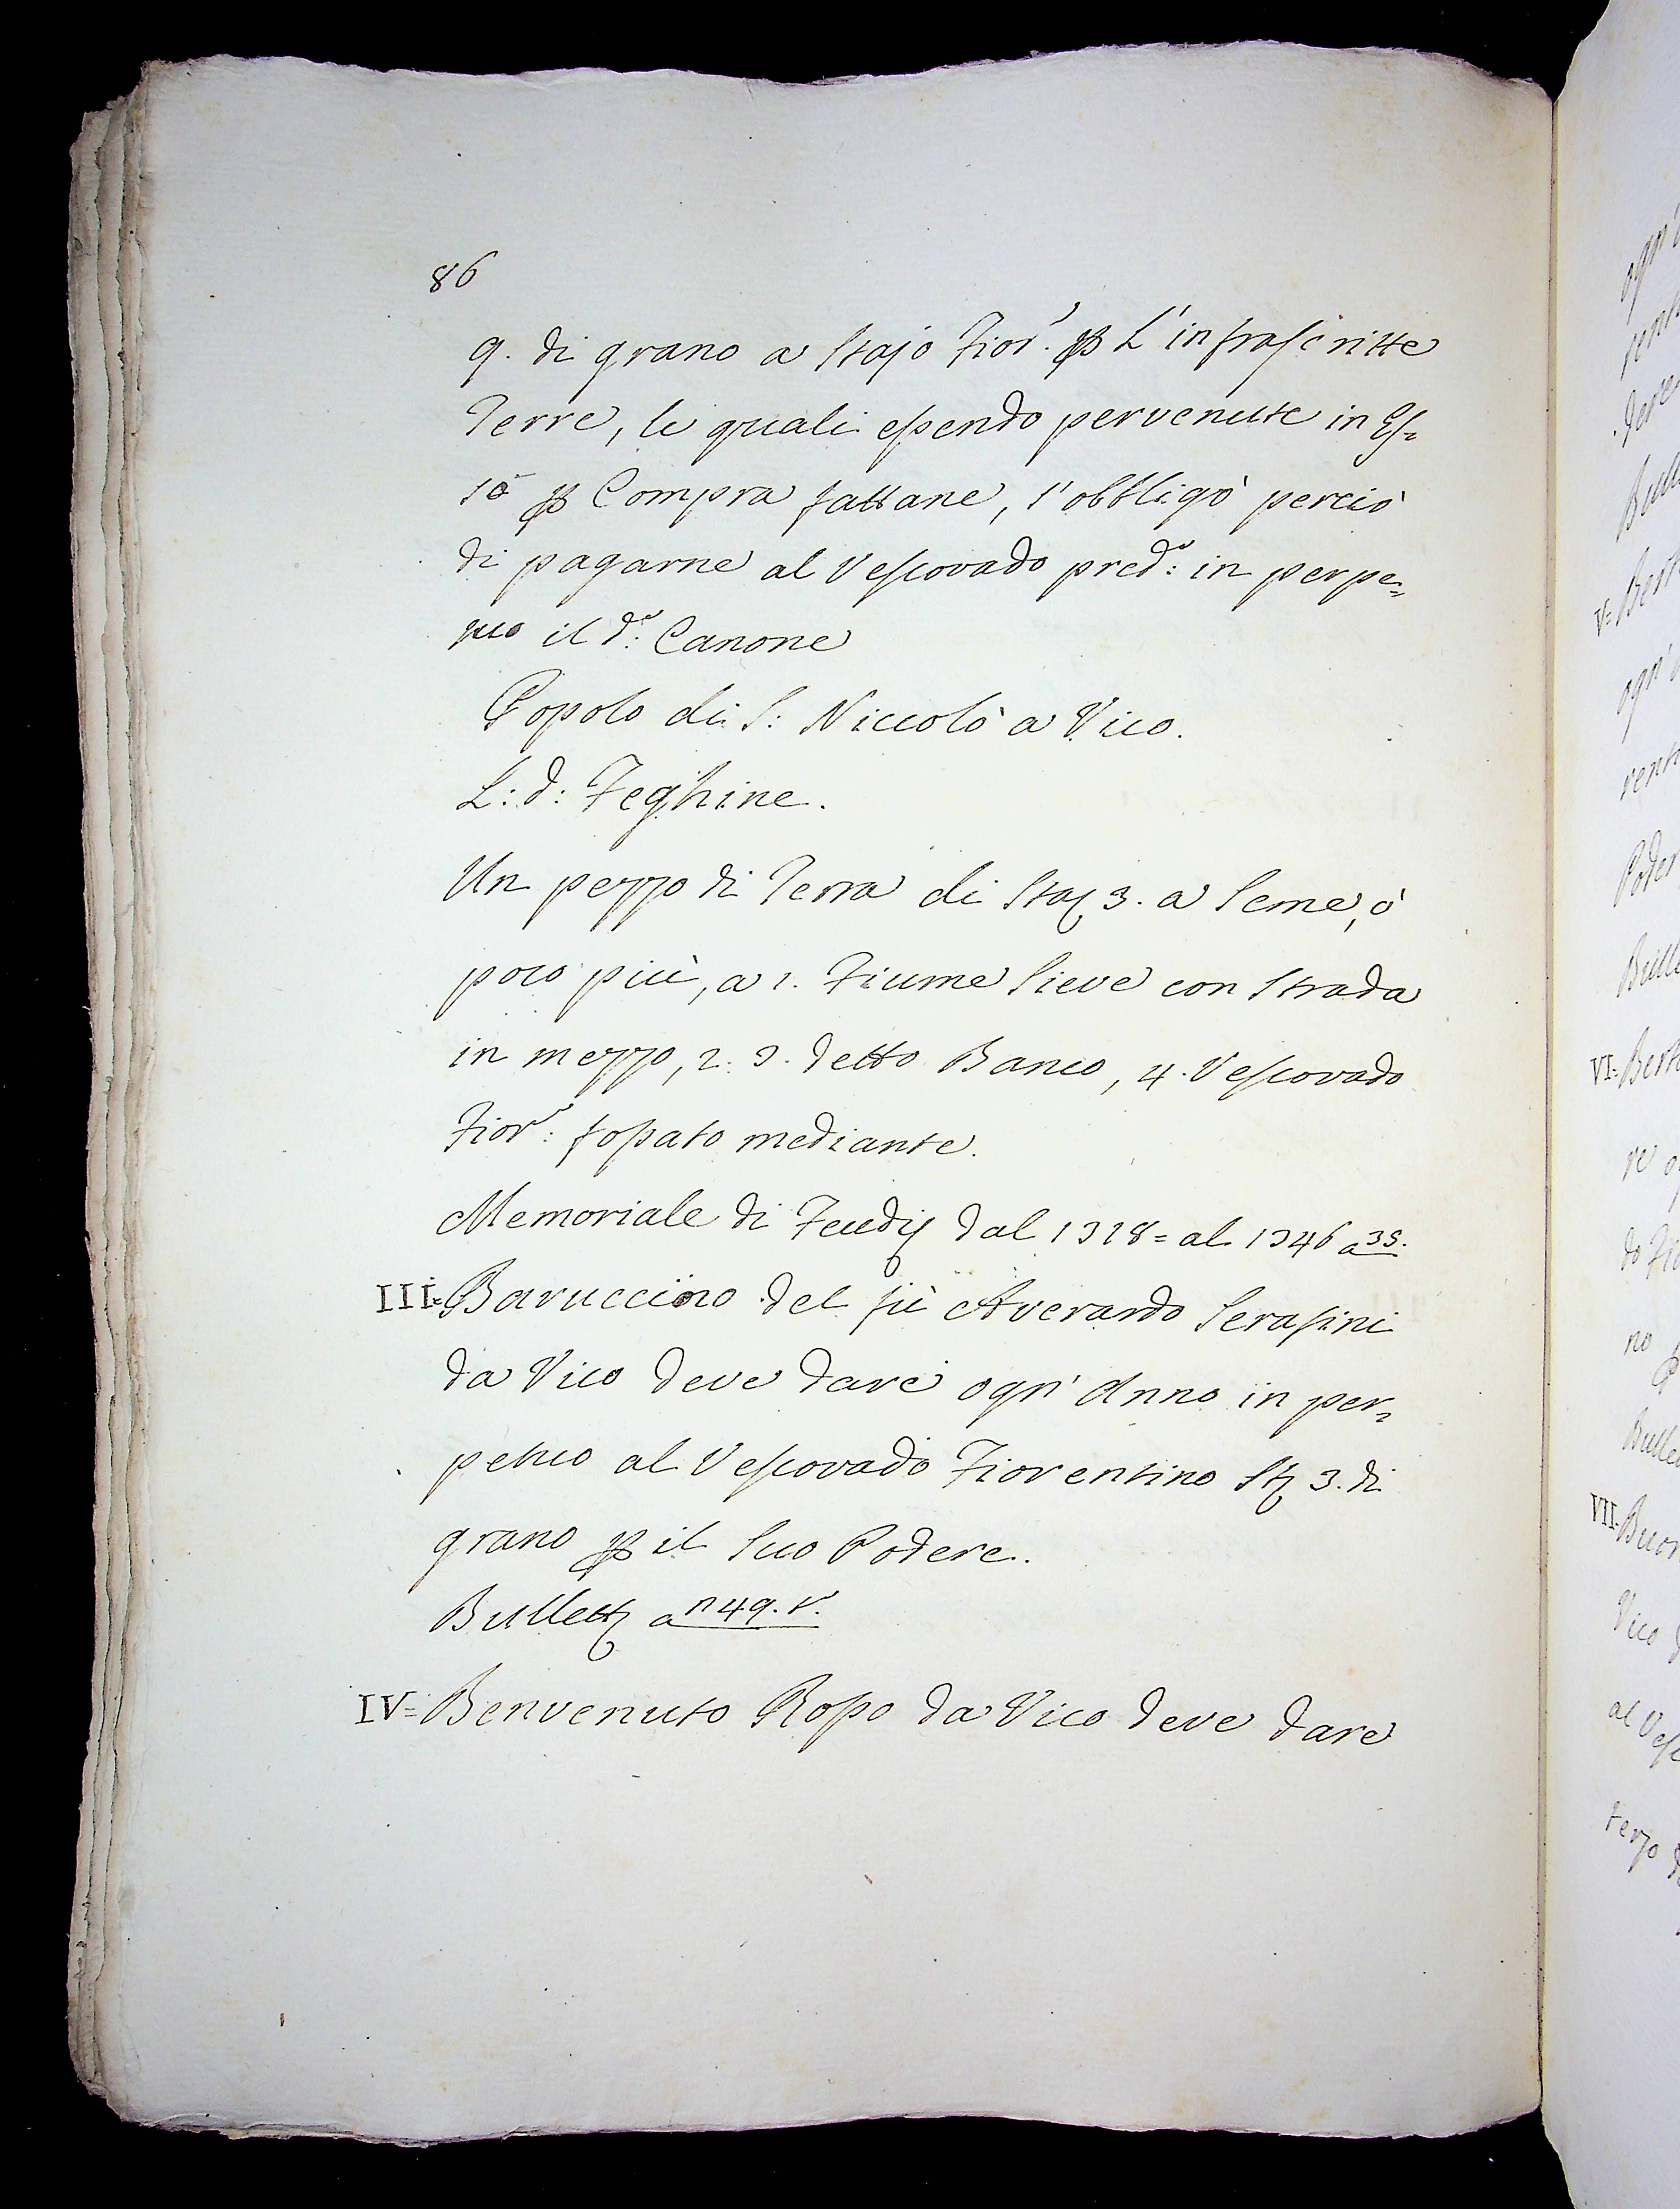 86
9. di grano a Stajo Fior.º ꝑ L'infrascritte
Terre, le quali essendo pervenute in Es=
so ꝑ Compra fattane, s'obbligò perciò
di pagarne al Vescovado pred.º: in perpe=
tuo il d.º: Canone
Popolo di S: Niccolò a Vico.
L: d: Feghine.
Un pezzo di Terra di Staj 3. a Seme, ò
poco più, a 1. Fiume Sieve con Strada
in mezzo, 2. 3. detto Banco, 4. Vescovado
Fior.º: fossato mediante.
Memoriale di Feudis dal 1318= al 1346 a 35.
III= Baruccino del fù Averardo Serafini
da Vico deve dare ogn'Anno in per=
petuo al Vescovado Fiorentino St. 3. di
grano ꝑ il Suo Podere.
Bullett. a n 49. r.
IV= Benvenuto Rosso da Vico deve dare
V=
VI=
VII=
Vico
terzo